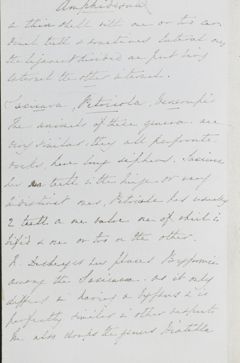 Amphidesma
a thin shell with one or two car
dinal teeth & sometimes lateral ones
the ligament divided one part being
external the other internal.
Saxicava, Petricola, Venerupis
The animals of these genera are
very similar, they all perforate
rocks, have long siphons. Saxicava
has no teeth in the hinge or very
indistinct ones, Petricola has usually
2 teeth in one valve one of which is
bifid & one or two in the other.
Deshayes has placed Byssomia
among the Saxicava as it only
differs in having a byssus & is
perfectly similar in other respects
he also drops the genus